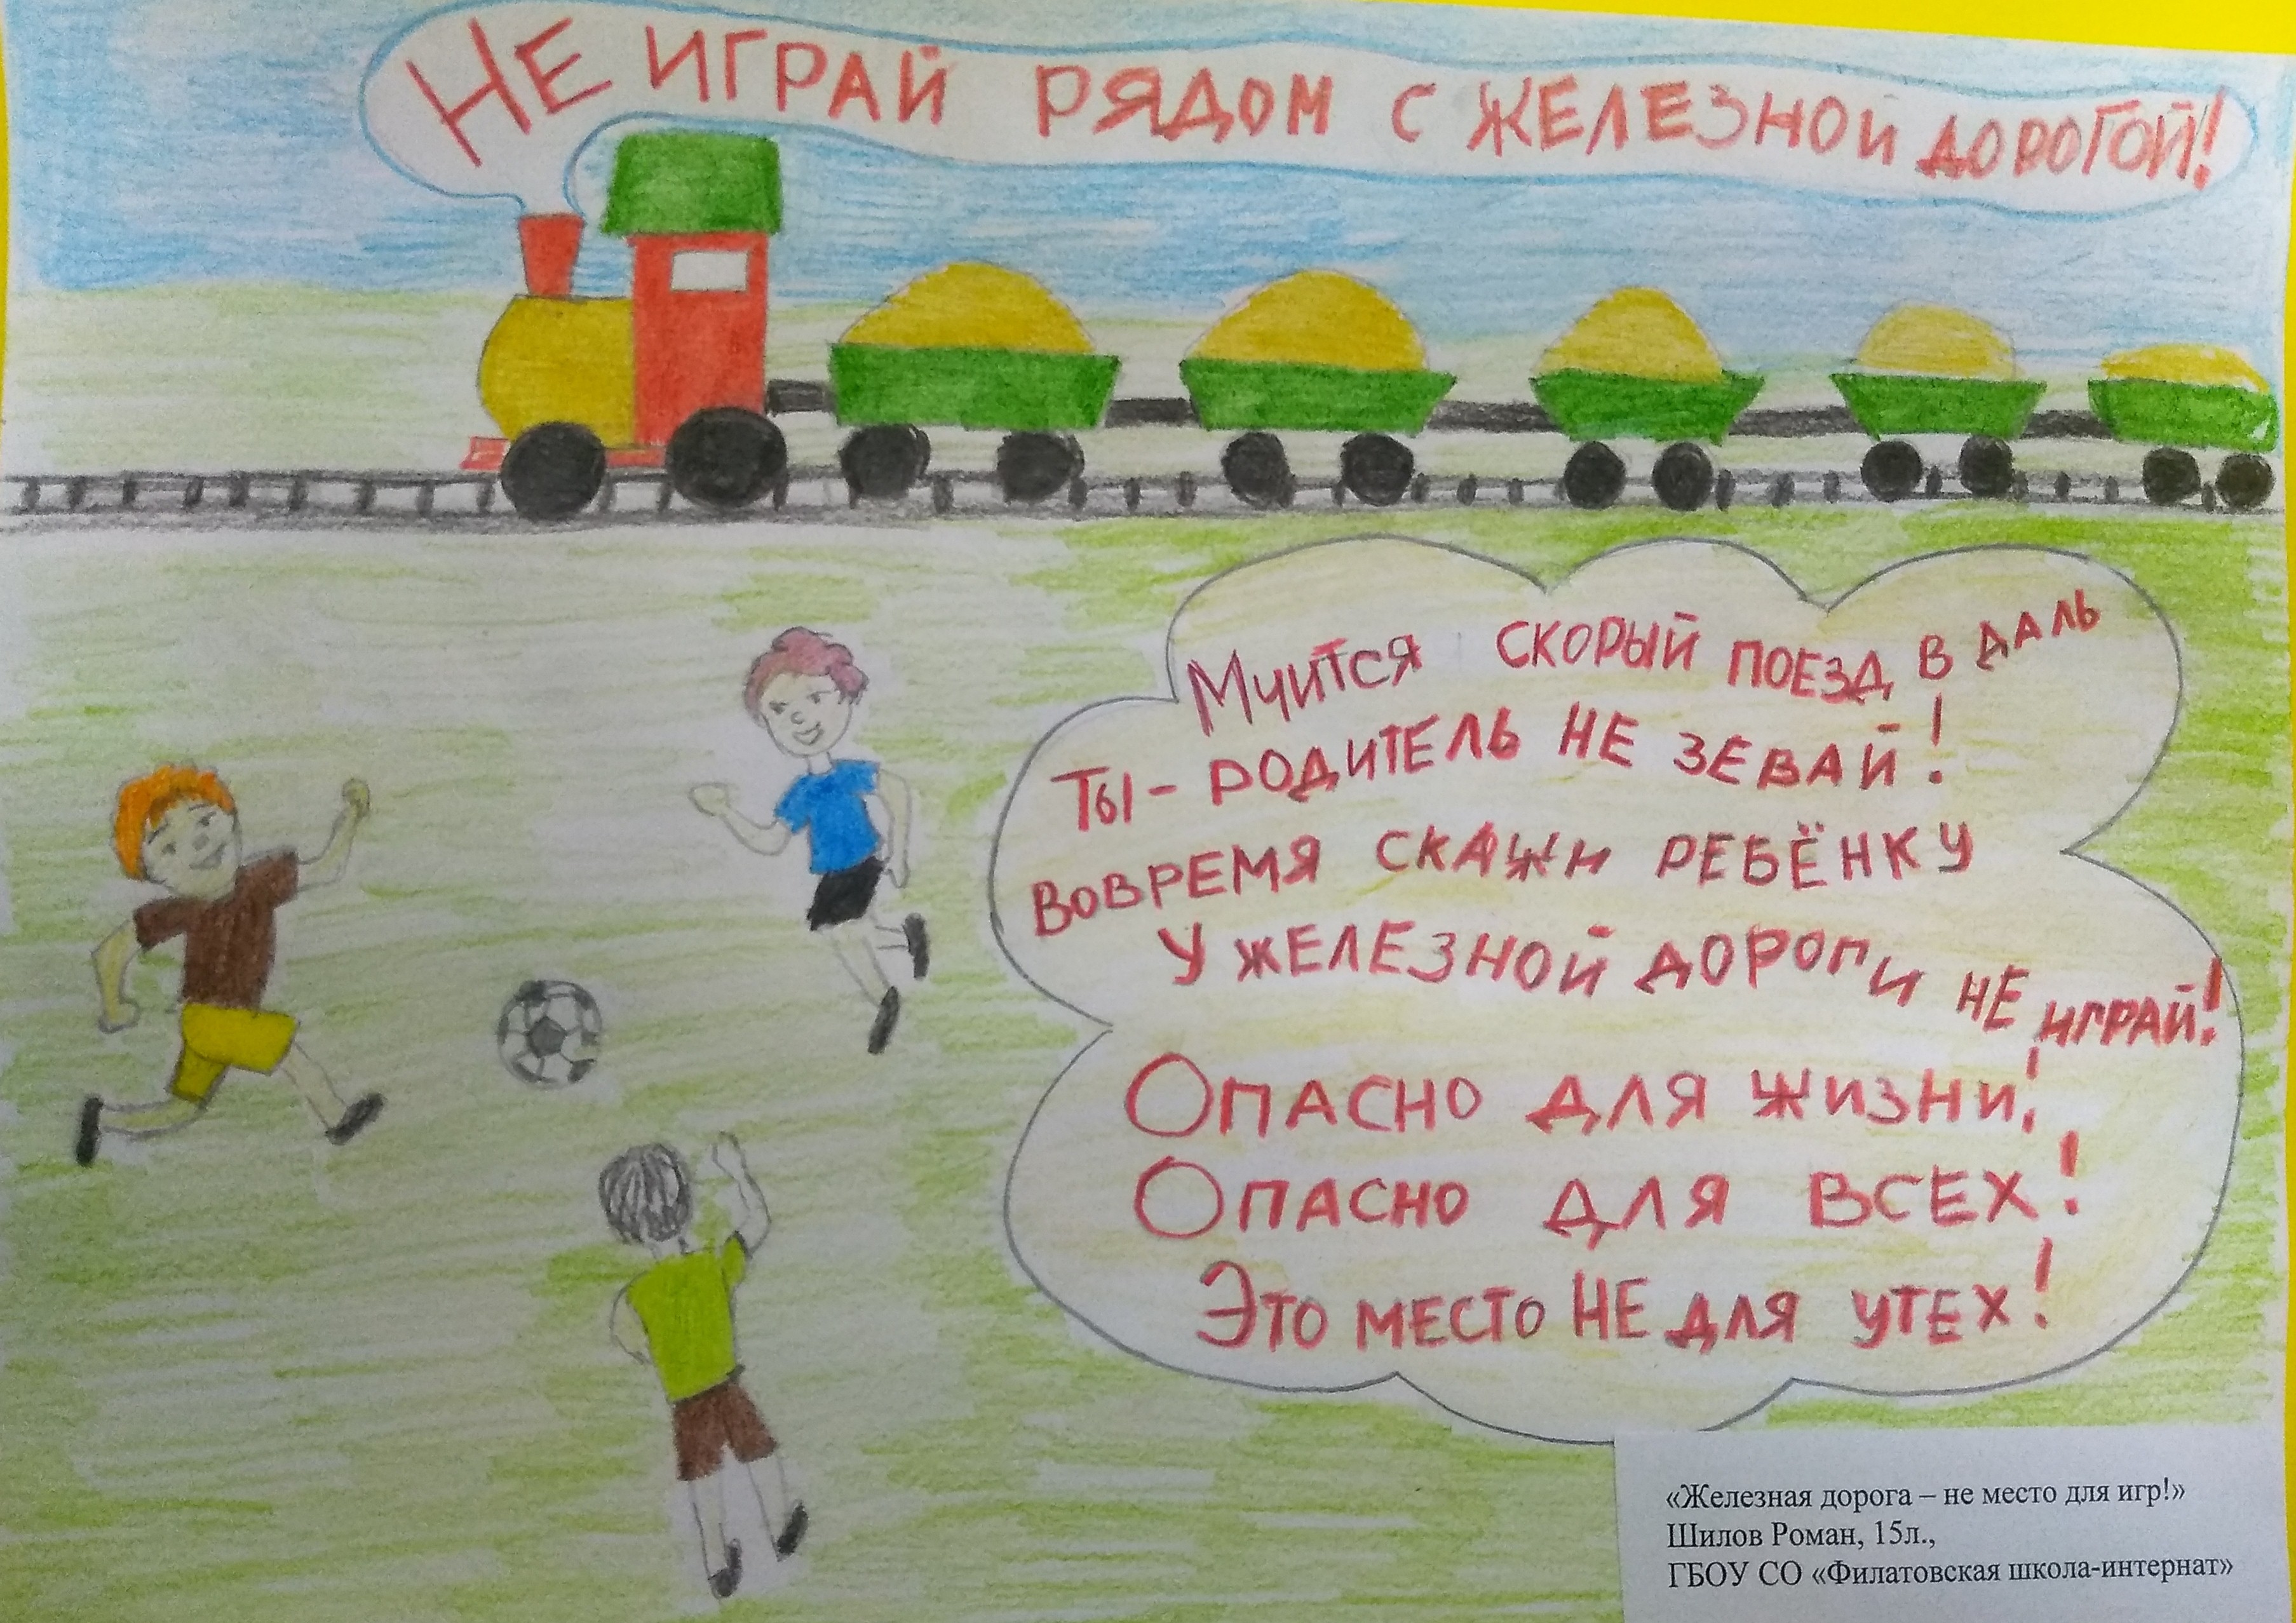 НЕ ИГРАЙ РЯДОМ С ЖЕЛЕЗНОЙ ДОРОГОЙ!
Мчится скорый поезд в даль
Ты - родитель не зевай!
Вовремя скажи ребёнку
У железной дороги не играй!
Опасно для жизни!
Опасно для всех!
Это место НЕ для утех!
«Железная дорога – не место для игр!»
Шилов Роман, 15л.,
ГБОУ СО «Филатовская школа-интернат»